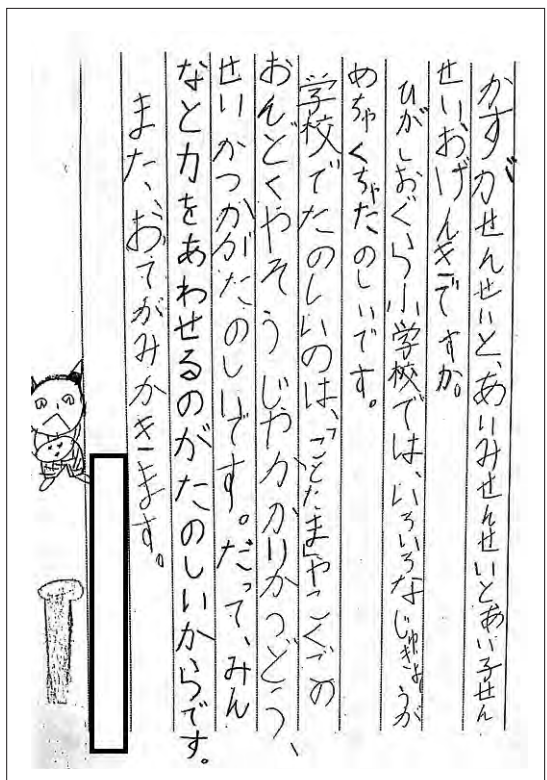 かすがせんせいと、あいみせんせいとあい子せん
せいおげんきですか。
ひがしおぐら小学校では、いろいろなじゅぎょうが
めちゃくちゃたのしいです。
学校でたのしいのは、「ことたま」やこくごの
おんどくやそうじやかかりかつどう、
せいかつかがたのしいです。だって、みん
なと力をあわせるのがたのしいからです。
また、おてがみかきます。